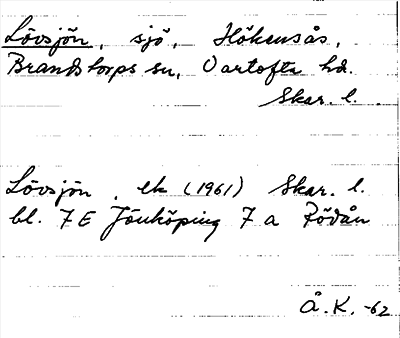 Lövsjön, sjö, Hökensås,
Brandstorps sn, Vartofta hd.
Skar. l.
Lövsjön, ek (1961) Skar. l.
bl. 7 E Jönköping 7 a Rödån
Å. K. -62